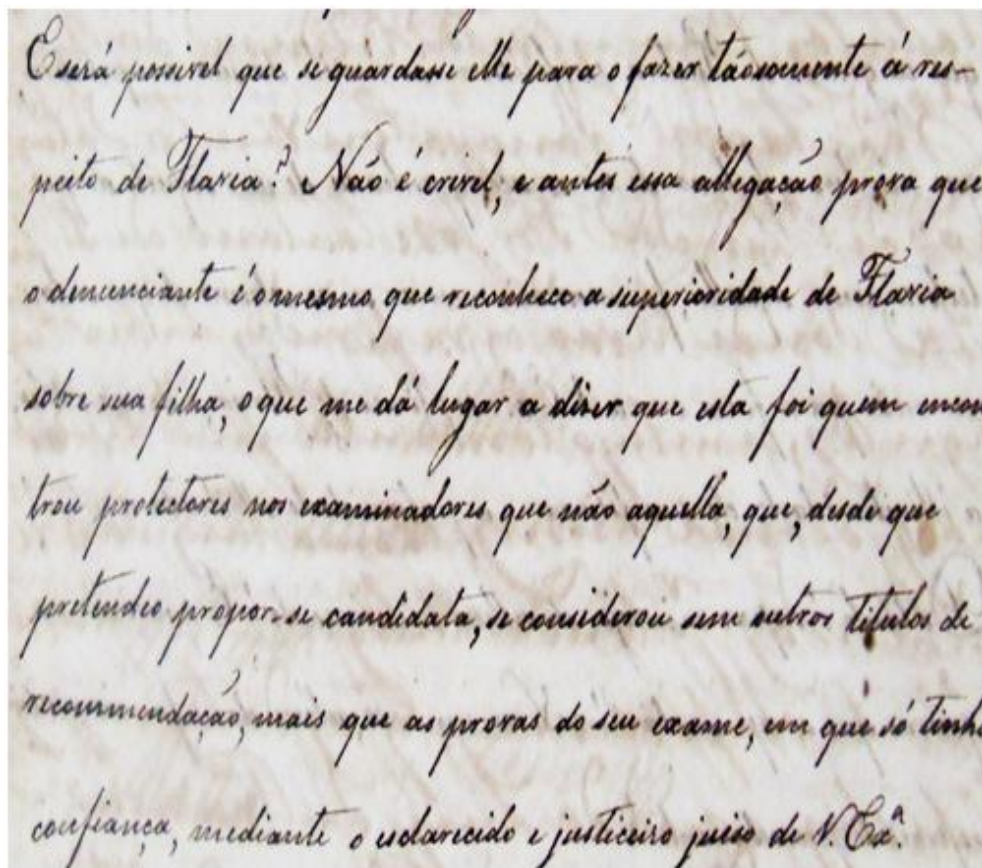 E será possivel que se guardasse elle para o fazer tãosomente á res-
peito de Flavia? Não é crivel, e antes essa allegação prova que
o denunciante é o mesmo que reconhece a superioridade de Flavia
sobre sua filha, o que me dá lugar a diser que esta foi quem encon
trou protectores nos examinadores que não aquella, que, desde que
pretendeo propor-se candidata, se considerou sem outros titulos de
recommendação, mais que as provas do seu exame, em que só tinha
confiança, mediante o esclarecido e justiceiro juiso de V. Exª.